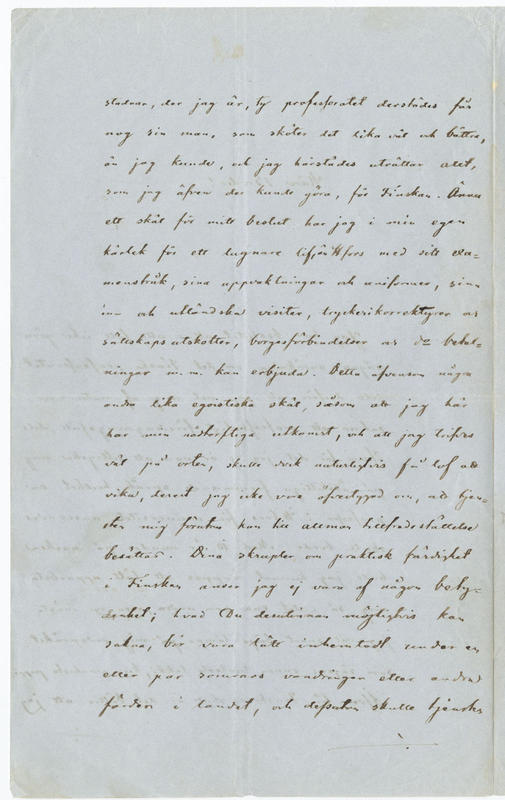 stadnar, der jag är, ty professoratet derstädes får
nog sin man, som sköter det lika väl och bättre,
än jag kunde, och jag härstädes uträttar allt,
som jag äfven der kunde göra, för Finskan. Ännu
ett skäl för mitt beslut har jag i min egen
kärlek för ett lugnare lif, än Hfors med sitt exa-
menstråk, sina uppvaktningar och uniformer, sina
inn och utländska visiter, tryckerikorrekturer as
sällskapsutskotter, borgesförbindelser as do betal-
ningar m. m. kan erbjuda. Detta äfvensom någon
andra lika egoistiska skäl, såsom att jag här
har min nödtorftiga utkomst, och att jag trifves
väl på orten, skulle dock naturligtvis få lof att
vika, derest jag icke vore öfvertygad om, att tjen-
sten mig förutan kan till allmän tillfredsställelse
besättas. Dina skrupler om praktisk färdighet
i Finskan anser jag ej vara af någon bety-
denhet; hvad Du dessutinnan möjligtvis kan
sakna, bör vara lätt inhemtadt under en
eller par somrars vandringar eller andra
färder i landet, och dessutom skulle tjensten